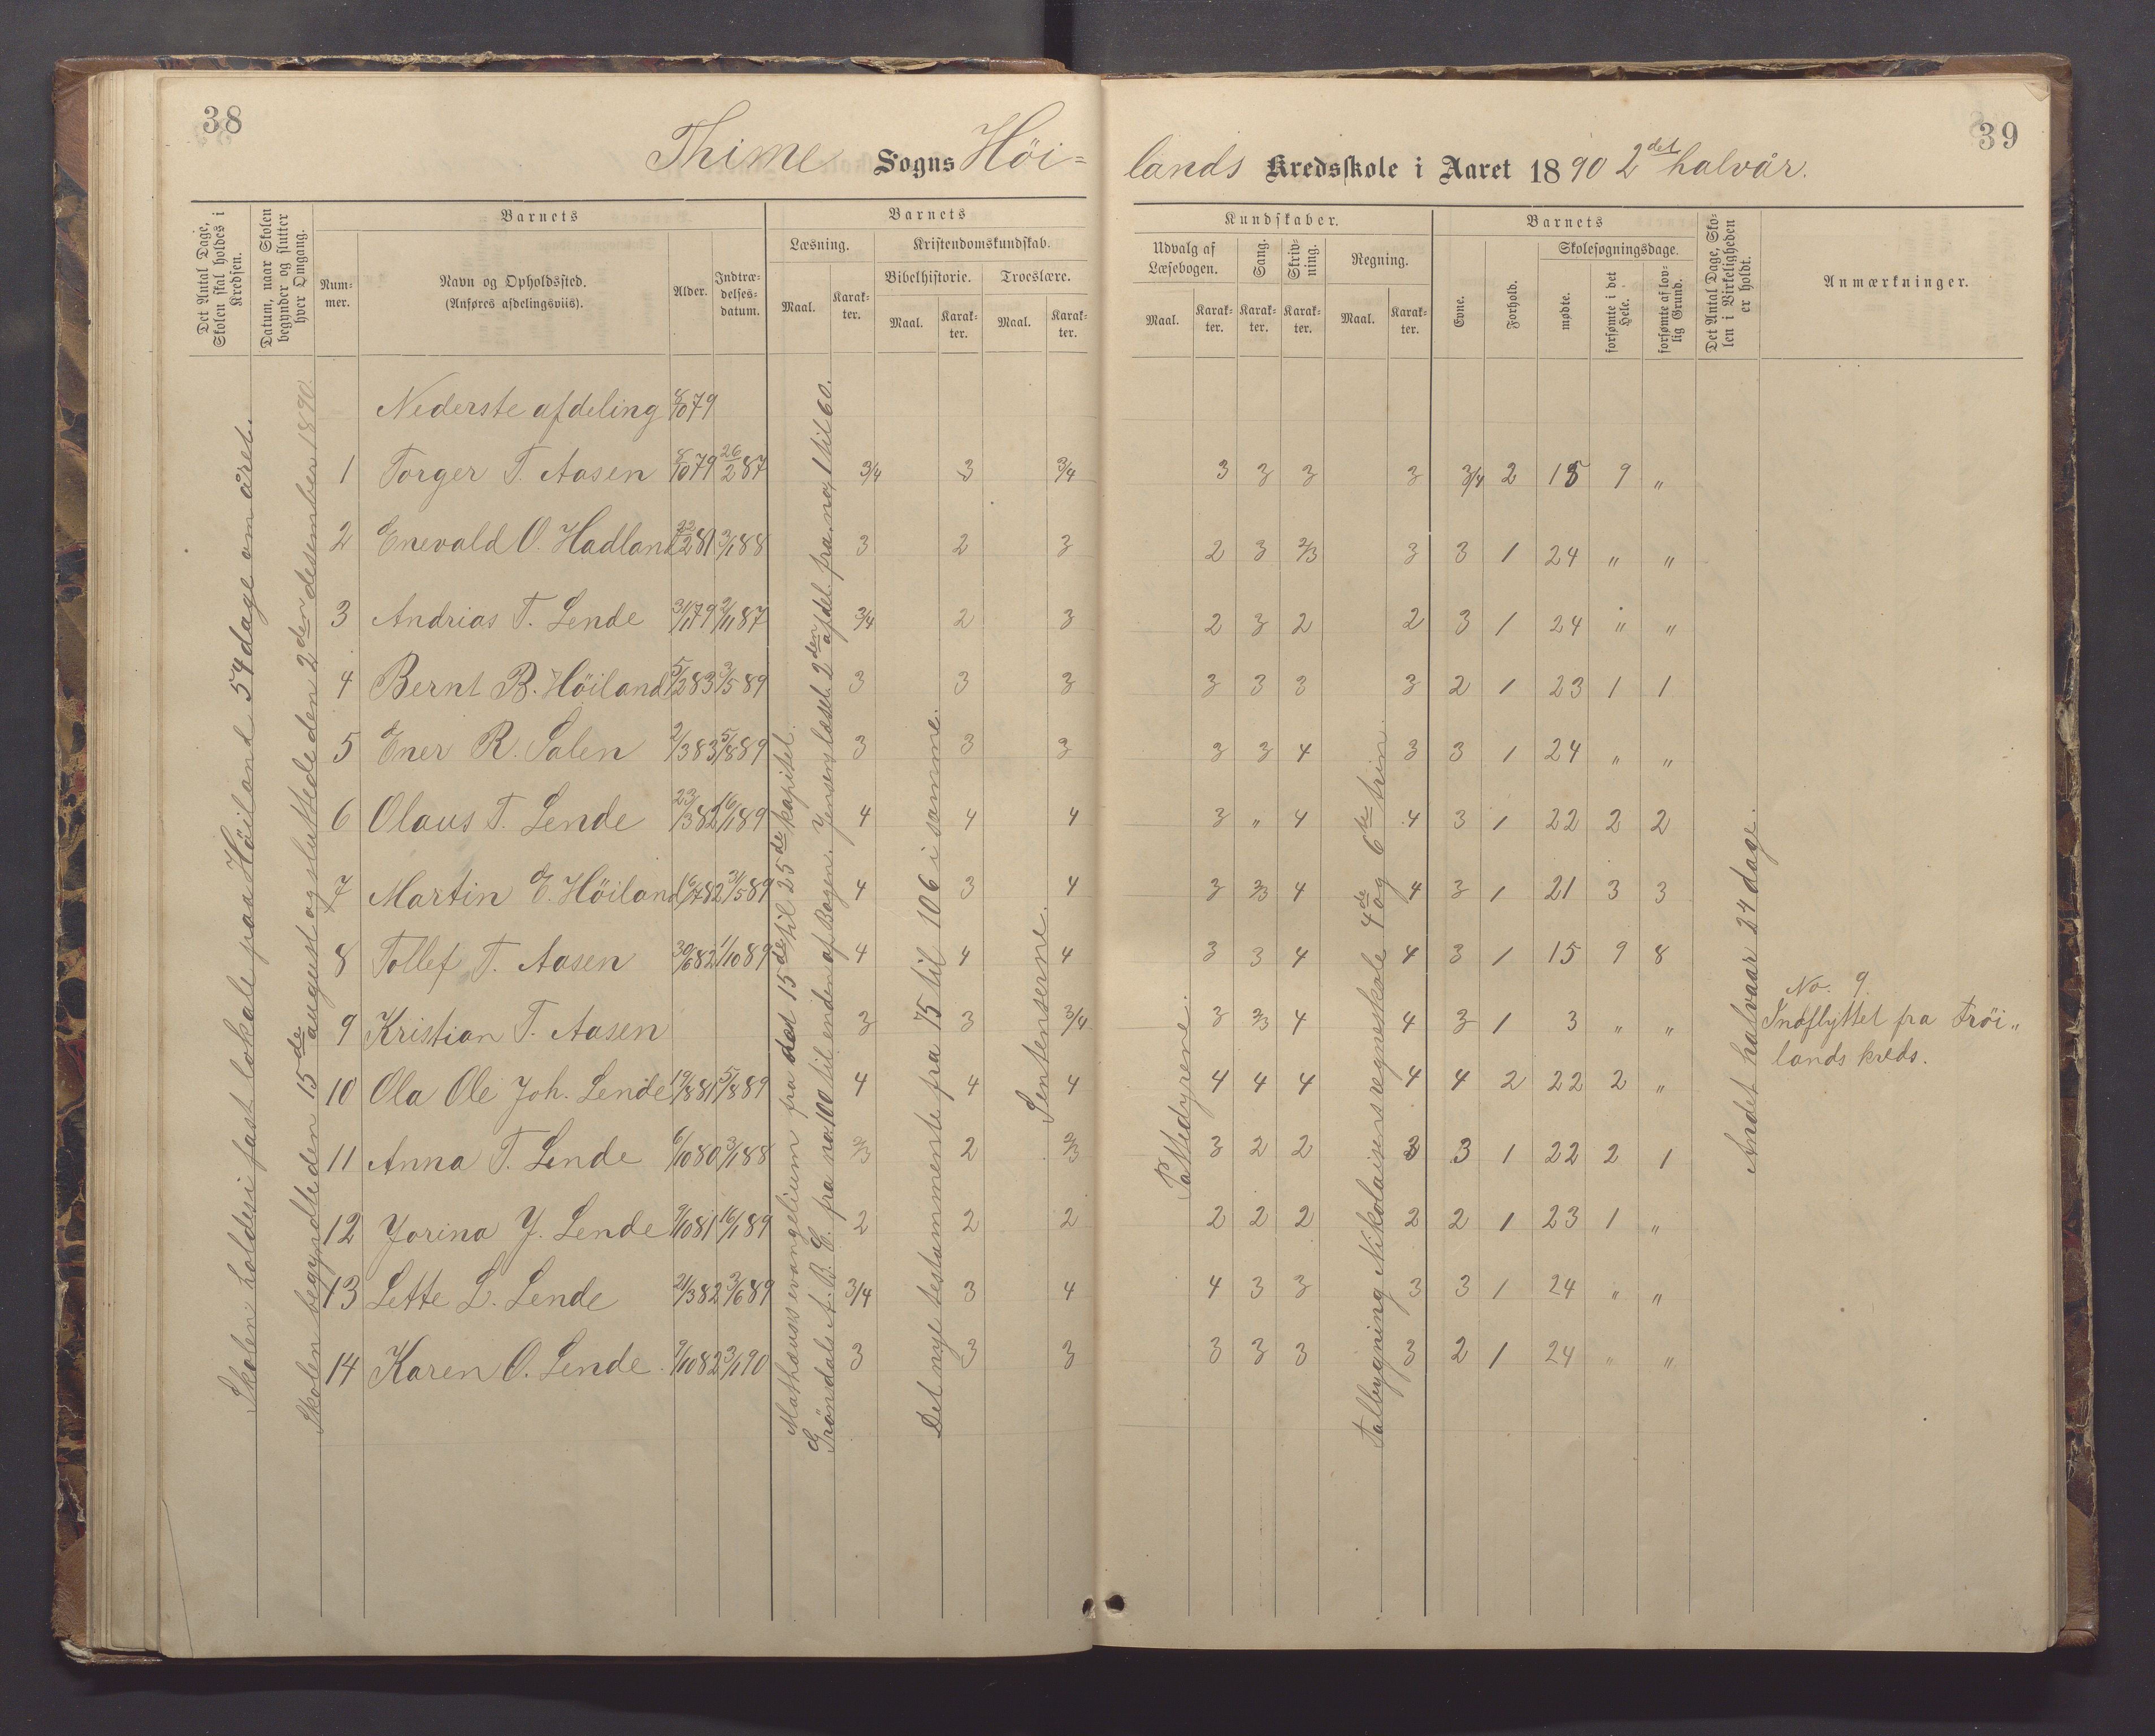 38
39
Thime Sogns Höi=
lands Kredsskole i Aaret 1890 2det halvår.
Det Antal Dage, Skolen skal holdes i Kredsen.
Datum, naar Skolen begynder og slutter hver Omgang.
Barnets
Num=mer.
Navn og Opholdssted.
(Anføres afdelingsviis).
Alder.
Indtræ=delses=datum.
Barnets
Læsning.
Maal.
Karak=ter.
Kristendomskundskab.
Bibelhistorie.
Maal.
Karak=ter.
Troeslære.
Maal.
Karak=ter.
Kundskaber.
Udvalg af Læsebogen.
Maal.
Karak=ter.
Sang.
Karak=ter.
Skriv=ning.
Karak=ter.
Regning.
Maal.
Karak=ter.
Barnets
Evne.
Forhold.
Skolesøgningsdage.
mødte.
forsømte i det Hele.
forsømte af lovlig Grund.
Det Antal Dage, Skolen i Virkeligheden er holdt.
Anmærkninger.
Skolen holdes i fast lokale paa Höiland 54 dage om året.
Skolen begyndte den 15de august og sluttede den 2den desember 1890.
Mathæuss evangelium fra det 15de til 25de kapitel.
Gröndals A. B. C. fra no. 100 til enden af Bogen. Jensens læseb. 2den afdel. fra no. 1 til 60.
Det nye testammente fra 75 til 106 i samme.
Sentenserne.
Pattedyrene.
Talbygning Nikolaisens regneskole 4de og 6te trin.
Andet halvaar 24 dage.
Nederste afdeling 8/10 79
1 Torger T. Aasen 8/10 79 26/2 87 3/4 3 3/4 3 3 3 3 3/4 2 15 9 "
2 Enevald O. Hadland 22/2 81 3/1 88 3 2 3 2 3 2/3 3 3 1 24 " "
3 Andrias T. Lende 31/1 79 2/11 87 3/4 2 3 2 3 2 2 3 1 24 " "
4 Bernt B. Höiland 5/2 83 3/5 89 3 3 3 3 3 3 3 2 1 23 1 1
5 Ener R. Salen 2/3 83 5/8 89 3 3 3 3 3 4 3 3 1 24 " "
6 Olaus T. Lende 23/3 82 16/1 89 4 4 4 3 " 4 4 3 1 22 2 2
7 Martin E. Höiland 16/7 82 31/5 89 4 3 4 3 2/3 4 4 3 1 21 3 3
8 Tollef T. Aasen 30/6 82 1/10 89 4 4 4 3 3 4 4 3 1 15 9 8
9 Kristian T. Aasen 3 3 3/4 3 2/3 4 4 3 1 3 " "
10 Ola Ole Joh. Lende 19/8 81 5/8 89 4 4 4 4 4 4 4 4 2 22 2 "
11 Anna T. Lende 6/10 80 3/1 88 2/3 2 2/3 3 2 2 3 3 1 22 2 1
12 Jorina J. Lende 9/10 81 16/1 89 2 2 2 2 2 2 2 2 1 23 1 "
13 Lette L. Lende 21/3 82 3/6 89 3/4 3 4 4 3 3 3 3 1 24 " "
14 Karen O. Lende 9/10 82 3/1 90 3 3 3 3 3 3 3 2 1 24 " "
No. 9.
Indflyttet fra Tröi„
lands kreds.